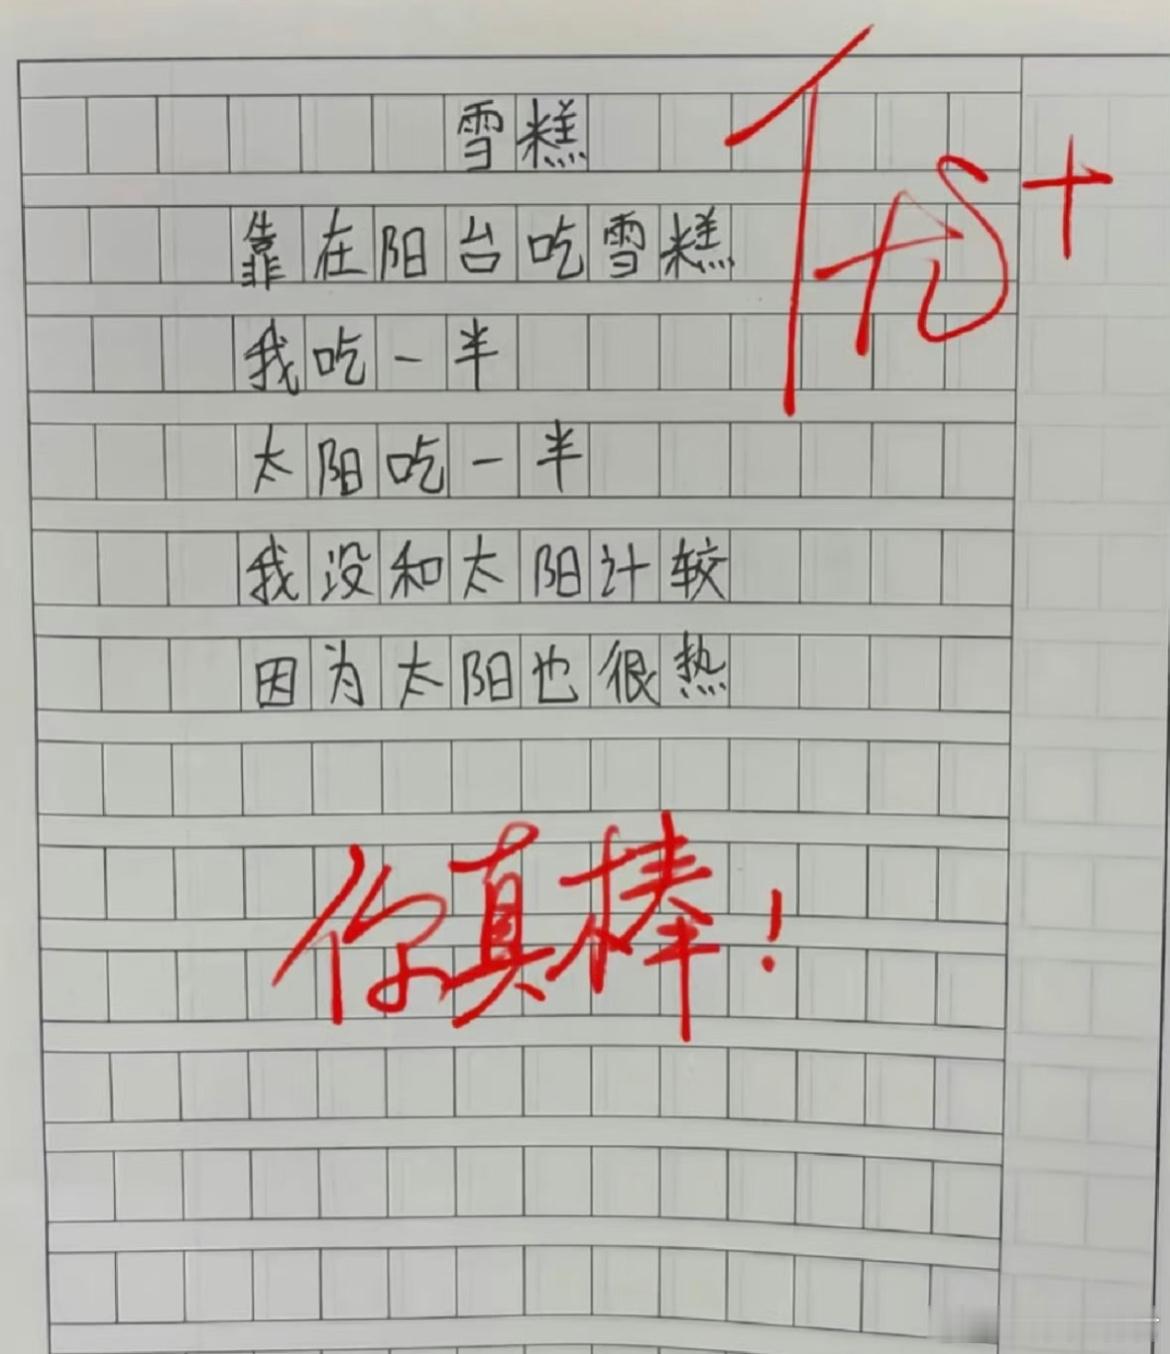 雪糕
优+
靠在阳台吃雪糕
我吃一半
太阳吃一半
我没和太阳计较
因为太阳也很热
你真棒！